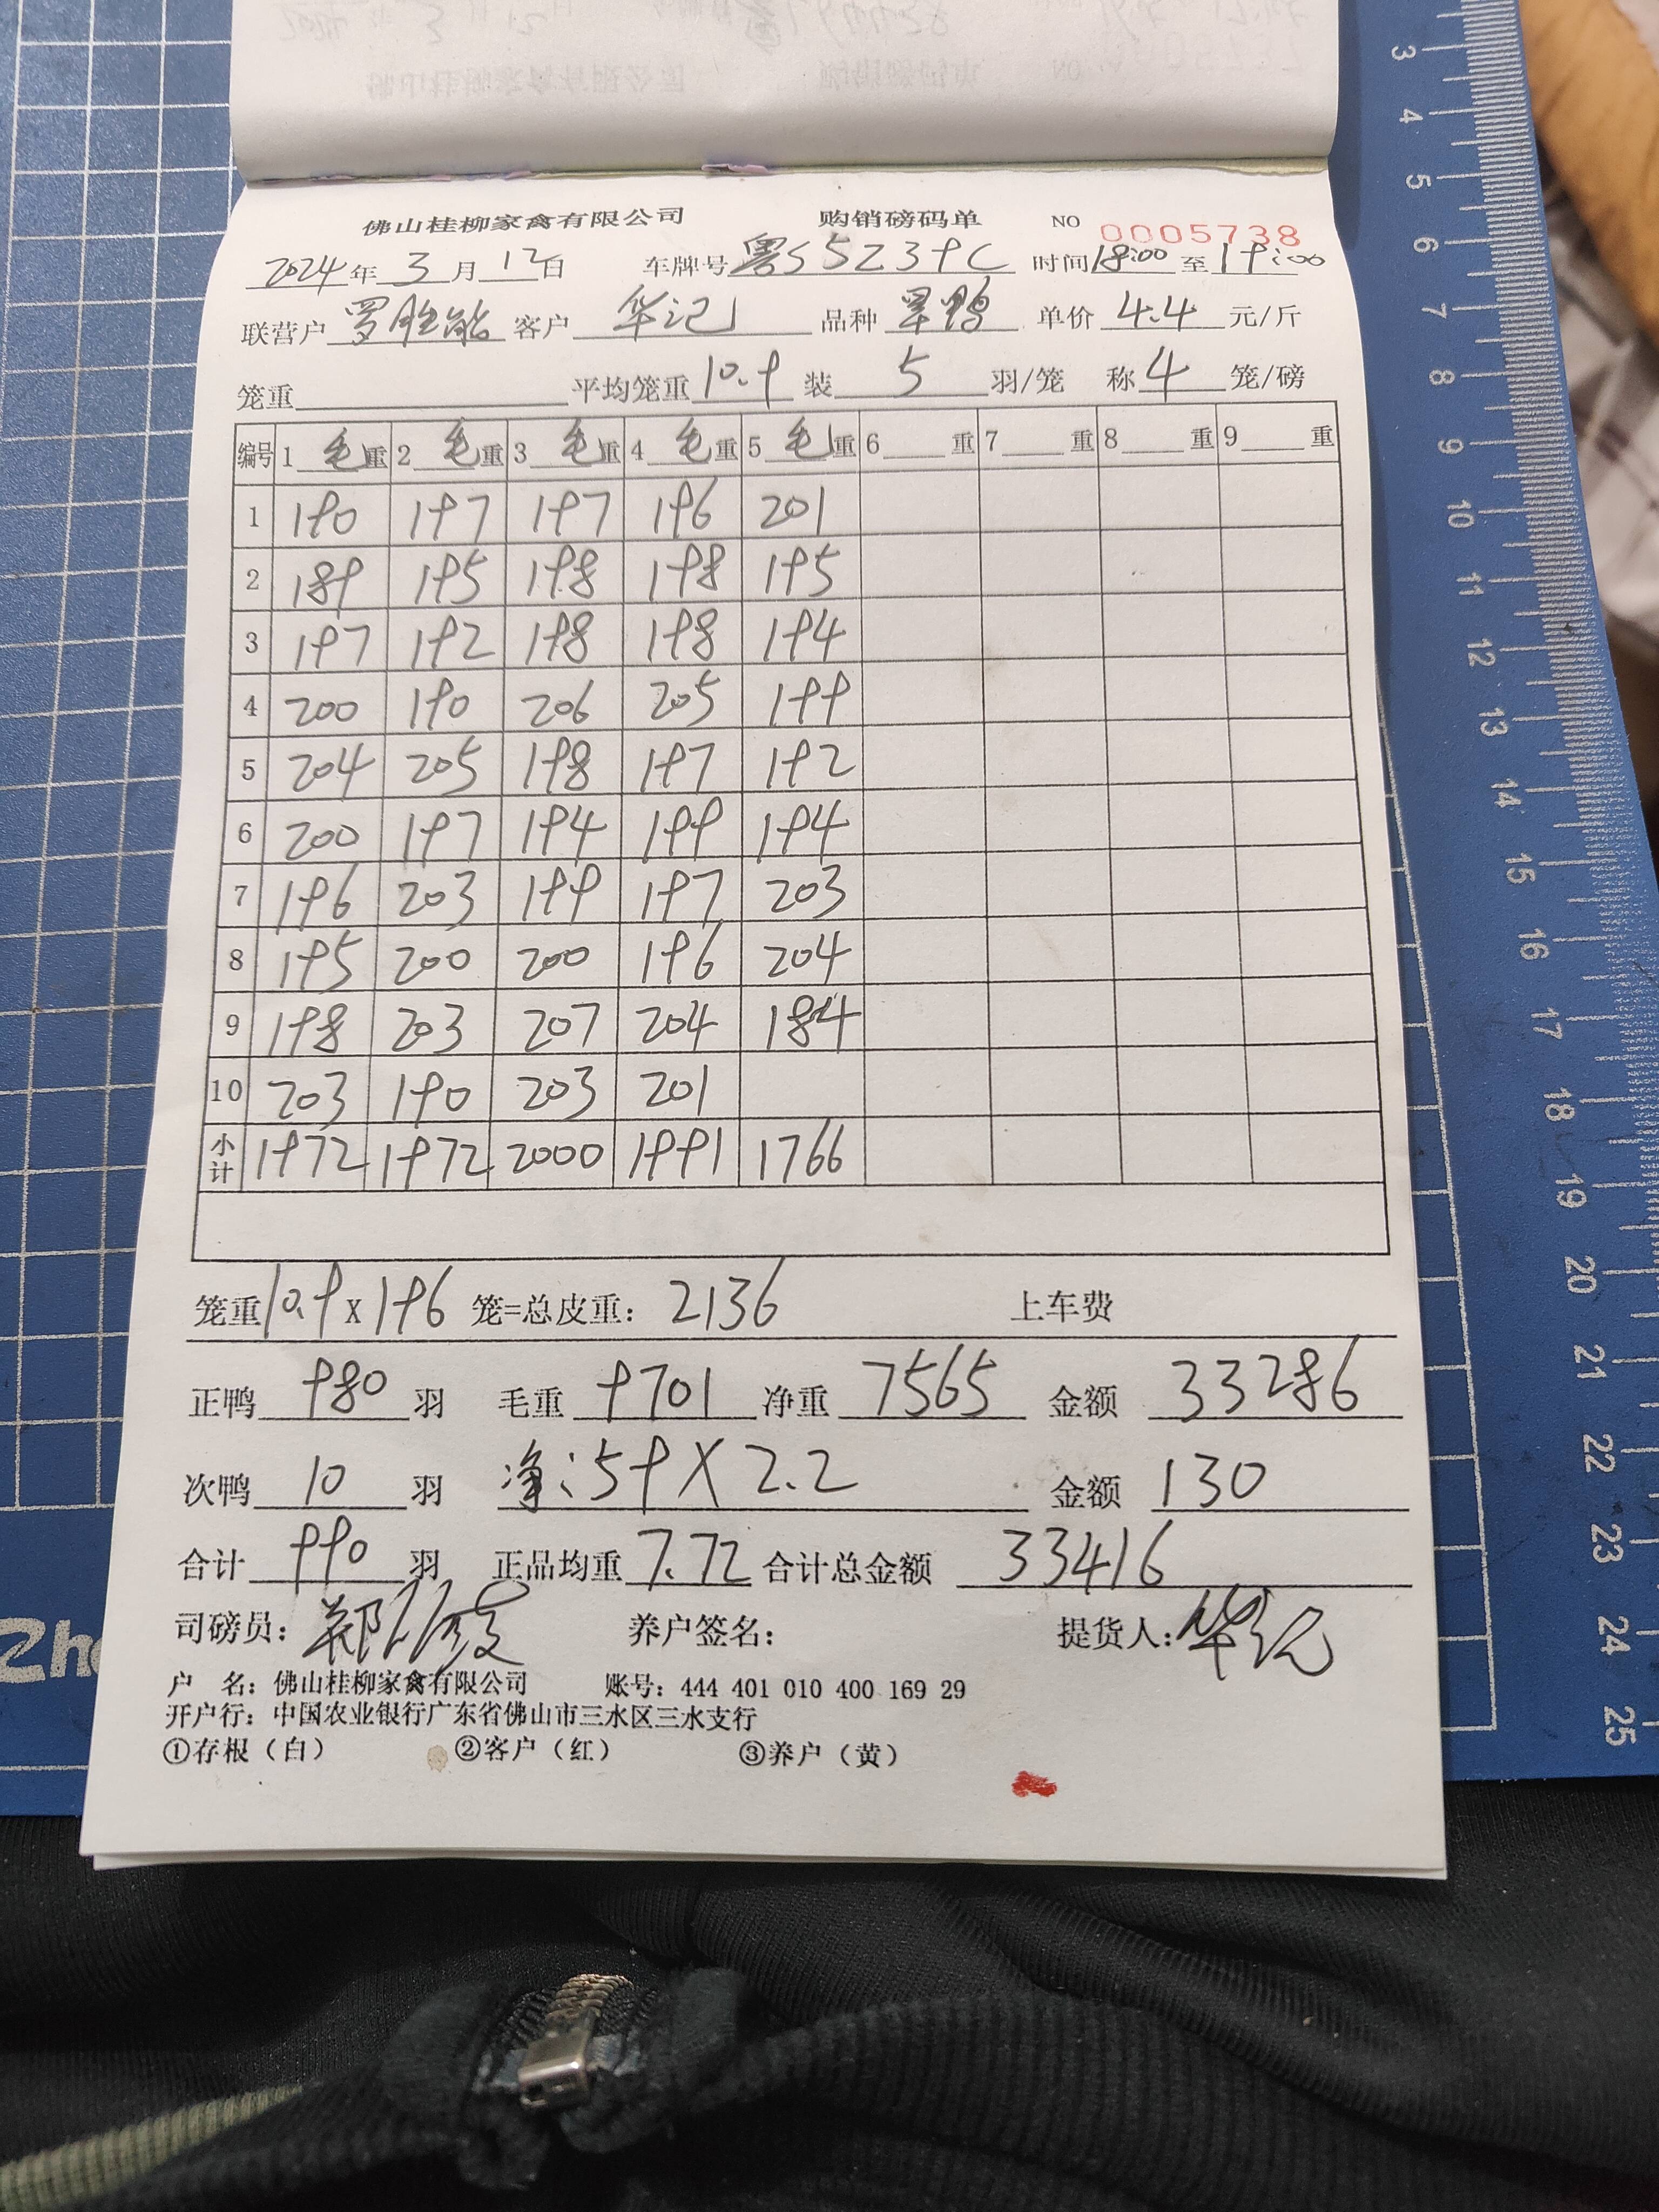 佛山桂柳家禽有限公司 购销磅码单 NO 0005738
2024年 3月 12日 车牌号 粤S5239C 时间 18:00 至 19:00
联营户 罗胜能 客户 华记 品种 旱鸭 单价 4.4 元/斤
笼重 平均笼重 10.9 装 5 羽/笼 称 4 笼/磅
编号 1 毛重 2 毛重 3 毛重 4 毛重 5 毛重 6 重 7 重 8 重 9 重
1 190 197 197 196 201
2 189 195 198 198 195
3 197 192 198 198 194
4 200 190 206 205 199
5 204 205 198 197 192
6 200 197 194 199 194
7 196 203 199 197 203
8 195 200 200 196 204
9 198 203 207 204 184
10 203 190 203 201
小计 1972 1972 2000 1991 1766
笼重 10.9 x 196 笼=总皮重: 2136 上车费
正鸭 980 羽 毛重 9701 净重 7565 金额 33286
次鸭 10 羽 净:59 X 2.2 金额 130
合计 990 羽 正品均重 7.72 合计总金额 33416
司磅员: 养户签名: 提货人: 华记
户 名: 佛山桂柳家禽有限公司 账号: 444 401 010 400 169 29
开户行: 中国农业银行广东省佛山市三水区三水支行
①存根（白） ②客户（红） ③养户（黄）
3
4
5
6
7
8
9
10
11
12
13
14
15
16
17
18
19
20
21
22
23
24
25